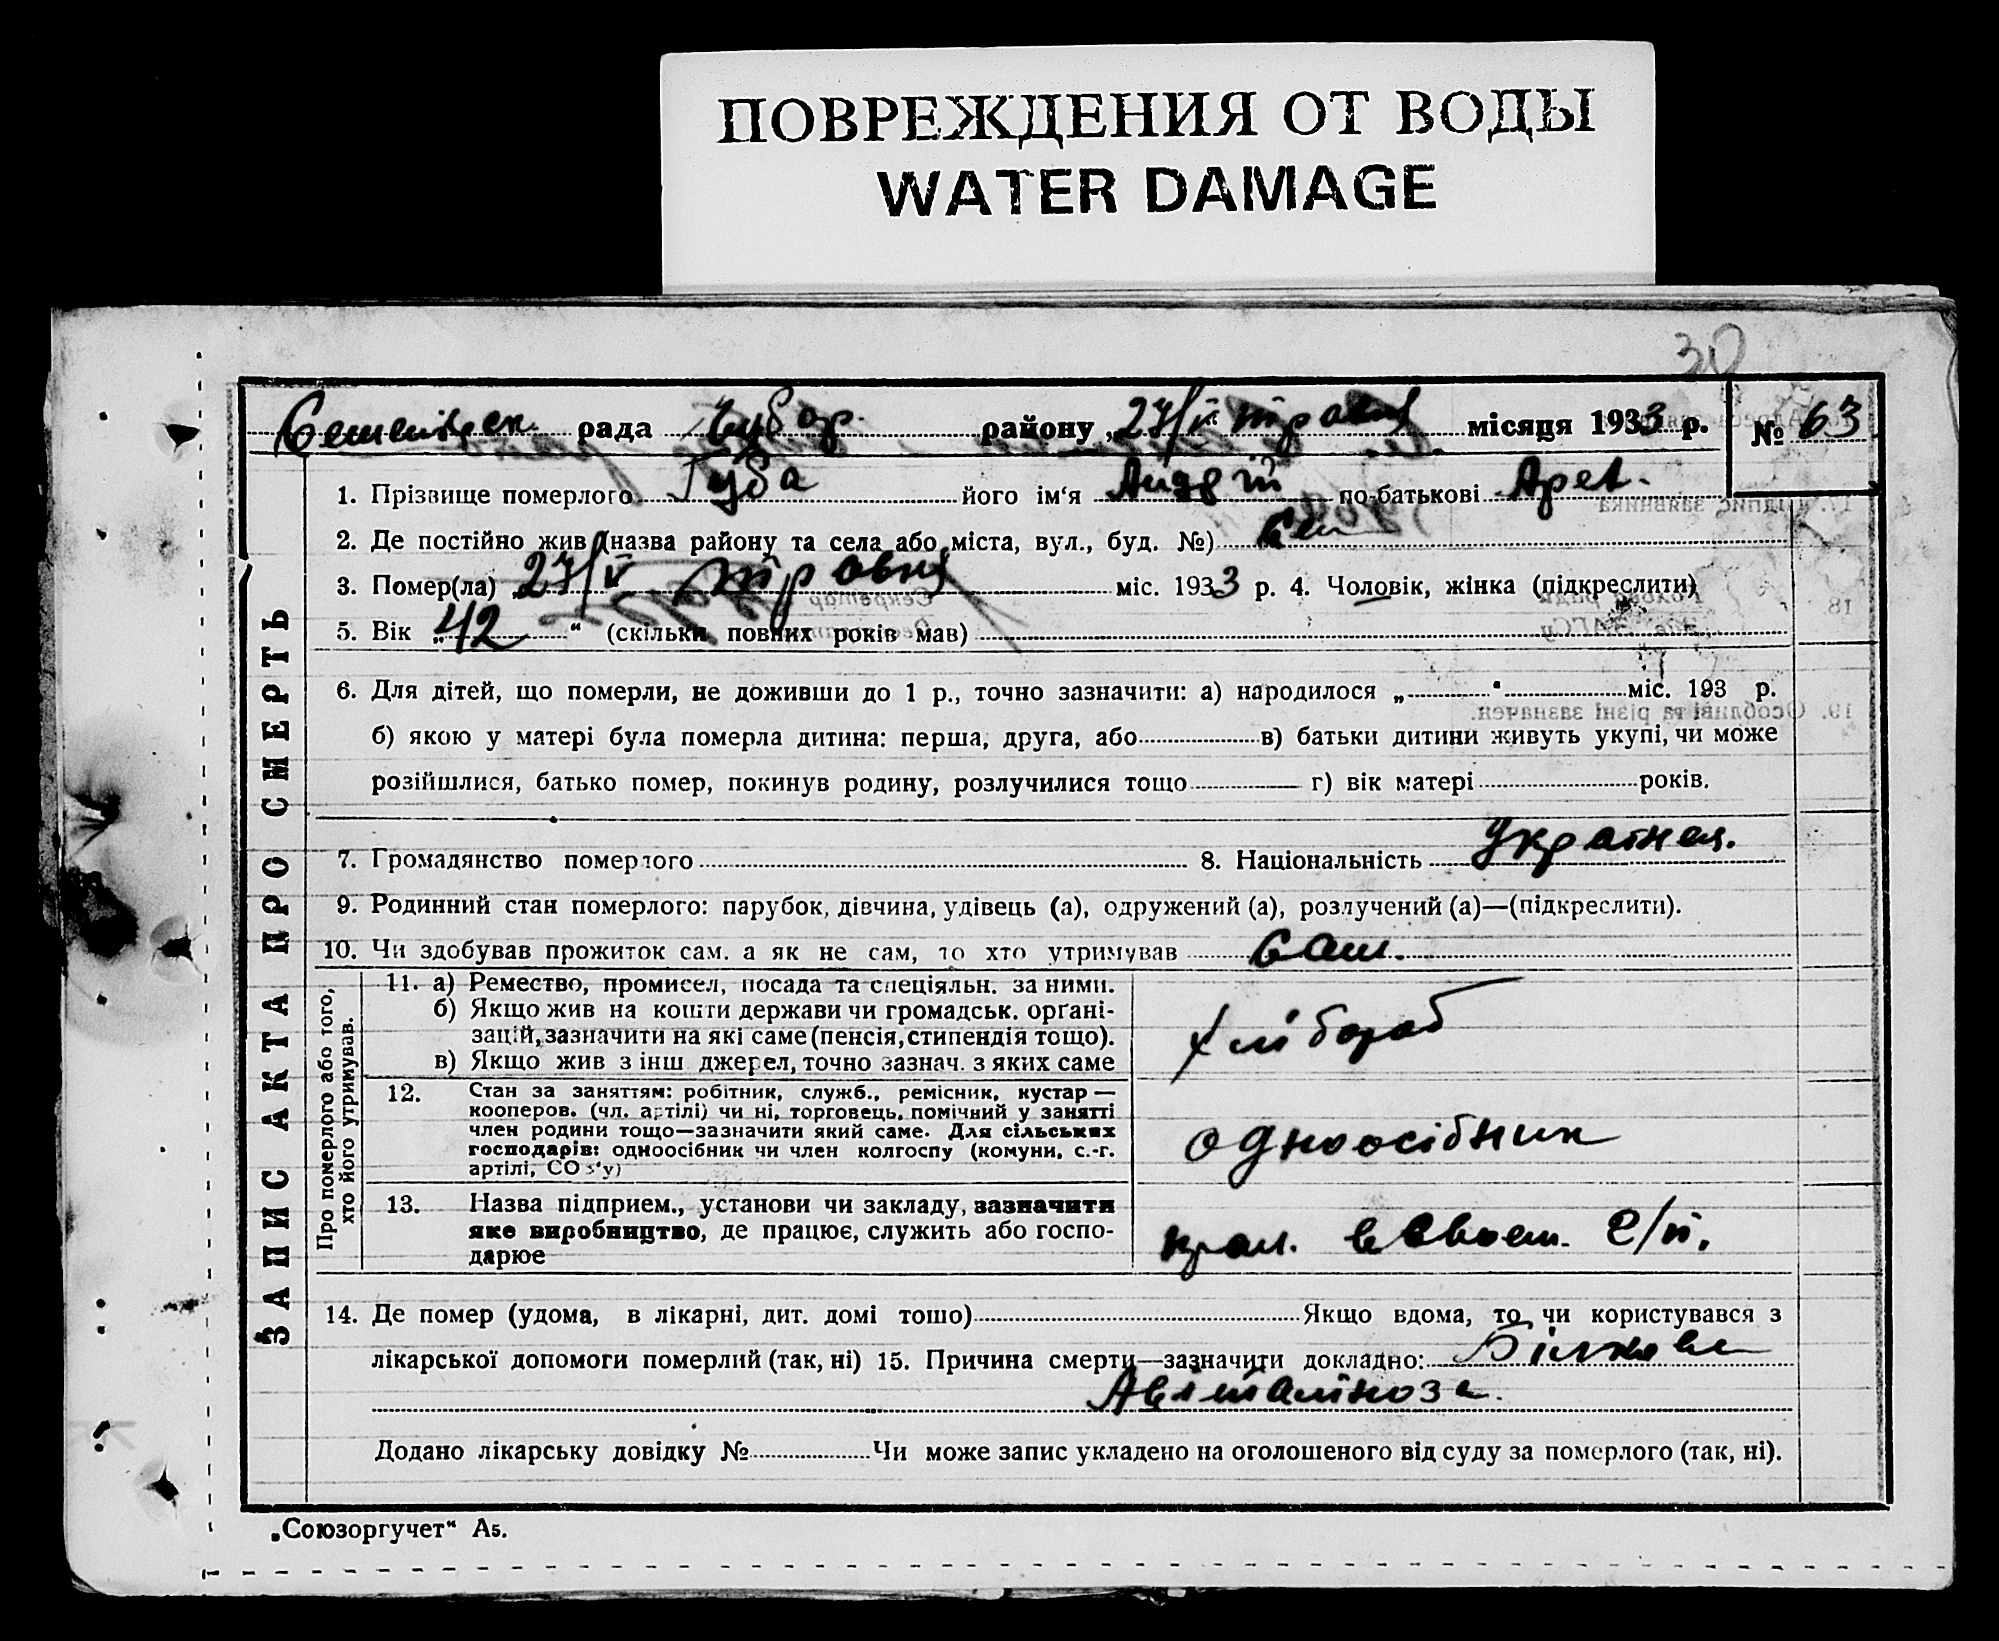 ПОВРЕЖДЕНИЯ ОТ ВОДЫ
WATER DAMAGE
30
рада Чубар. району „27/V травня місяця 1933 р. № 63
1. Прізвище померлого Губа його ім‘я Андрій по-батькові Арет.
2. Де постійно жив (назва району та села або міста, вул., буд. №)
3. Помер(ла) 27/V травня міс. 1933 р. 4. Чоловік, жінка (підкреслити)
5. Вік „42“ (скільки повних років мав)
6. Для дітей, що померли, не доживши до 1 р., точно зазначити: а) народилося „ “ міс. 193 р.
б) якою у матері була померла дитина: перша, друга, або в) батьки дитини живуть укупі, чи може
розійшлися, батько помер, покинув родину, розлучилися тощо г) вік матері років.
7. Громадянство померлого 8. Національність Українец.
9. Родинний стан померлого: парубок, дівчина, удівець (а), одружений (а), розлучений (а)—(підкреслити).
10. Чи здобував прожиток сам, а як не сам, то хто утримував Сам.
Про померлого або того,
хто його утримував.
11. а) Ремество, промисел, посада та спеціяльн. за ними.
б) Якщо жив на кошти держави чи громадськ. орґані-
зацій, зазначити на які саме (пенсія, стипендія тощо).
в) Якщо жив з інш джерел, точно зазнач. з яких саме
хлібороб
12. Стан за заняттям: робітник, служб., ремісник, кустар —
кооперов. (чл. артілі) чи ні, торговець, помічний у занятті
член родини тощо—зазначити який саме. Для сільських
господарів: одноосібник чи член колгоспу (комуни, с.-г.
артілі, СОЗ‘у)
одноосібник
13. Назва підприєм., установи чи закладу, зазначити
яке виробництво, де працює, служить або госпо-
дарює
прац. в Своем. С/г.
14. Де помер (удома, в лікарні, дит. домі тощо) Якщо вдома, то чи користувався з
лікарської допомоги померлий (так, ні) 15. Причина смерти—зазначити докладно: Білкове
Авітаміноза.
Додано лікарську довідку № Чи може запис укладено на оголошеного від суду за померлого (так, ні).
ЗАПИС АКТА ПРО СМЕРТЬ
„Союзоргучет“ А5.